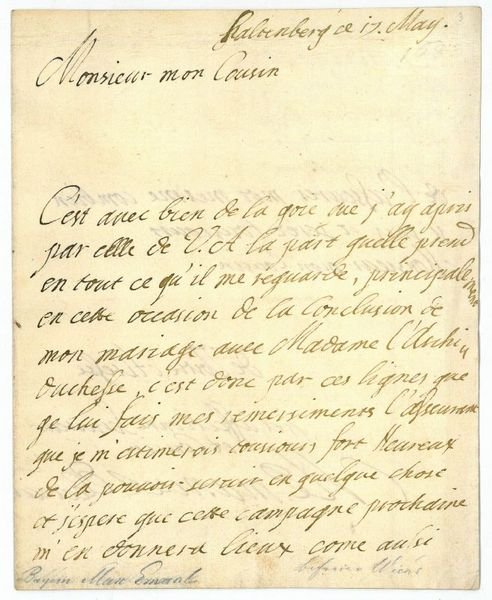 Haltenberg ce 17. May.
Monsieur mon Cousin
C'est avec bien de la goie que j'ay apris
par celle de V. A la part quelle prend
en tout ce qu'il me reguarde, principale,
ment
en cette occasion de la Conclusion de
mon mariage avec Madame l'Archi"
duchesse, c'est donc par ces lignes que
ge lui fais mes remersiments l'asseurant
que je m'estimerois tousiours fort Heureux
de la pouvoir servir en quelque chose
et j'espere que cette campagne prochaine
m'en donnera lieux come aussi
Bayern Max Emanuel